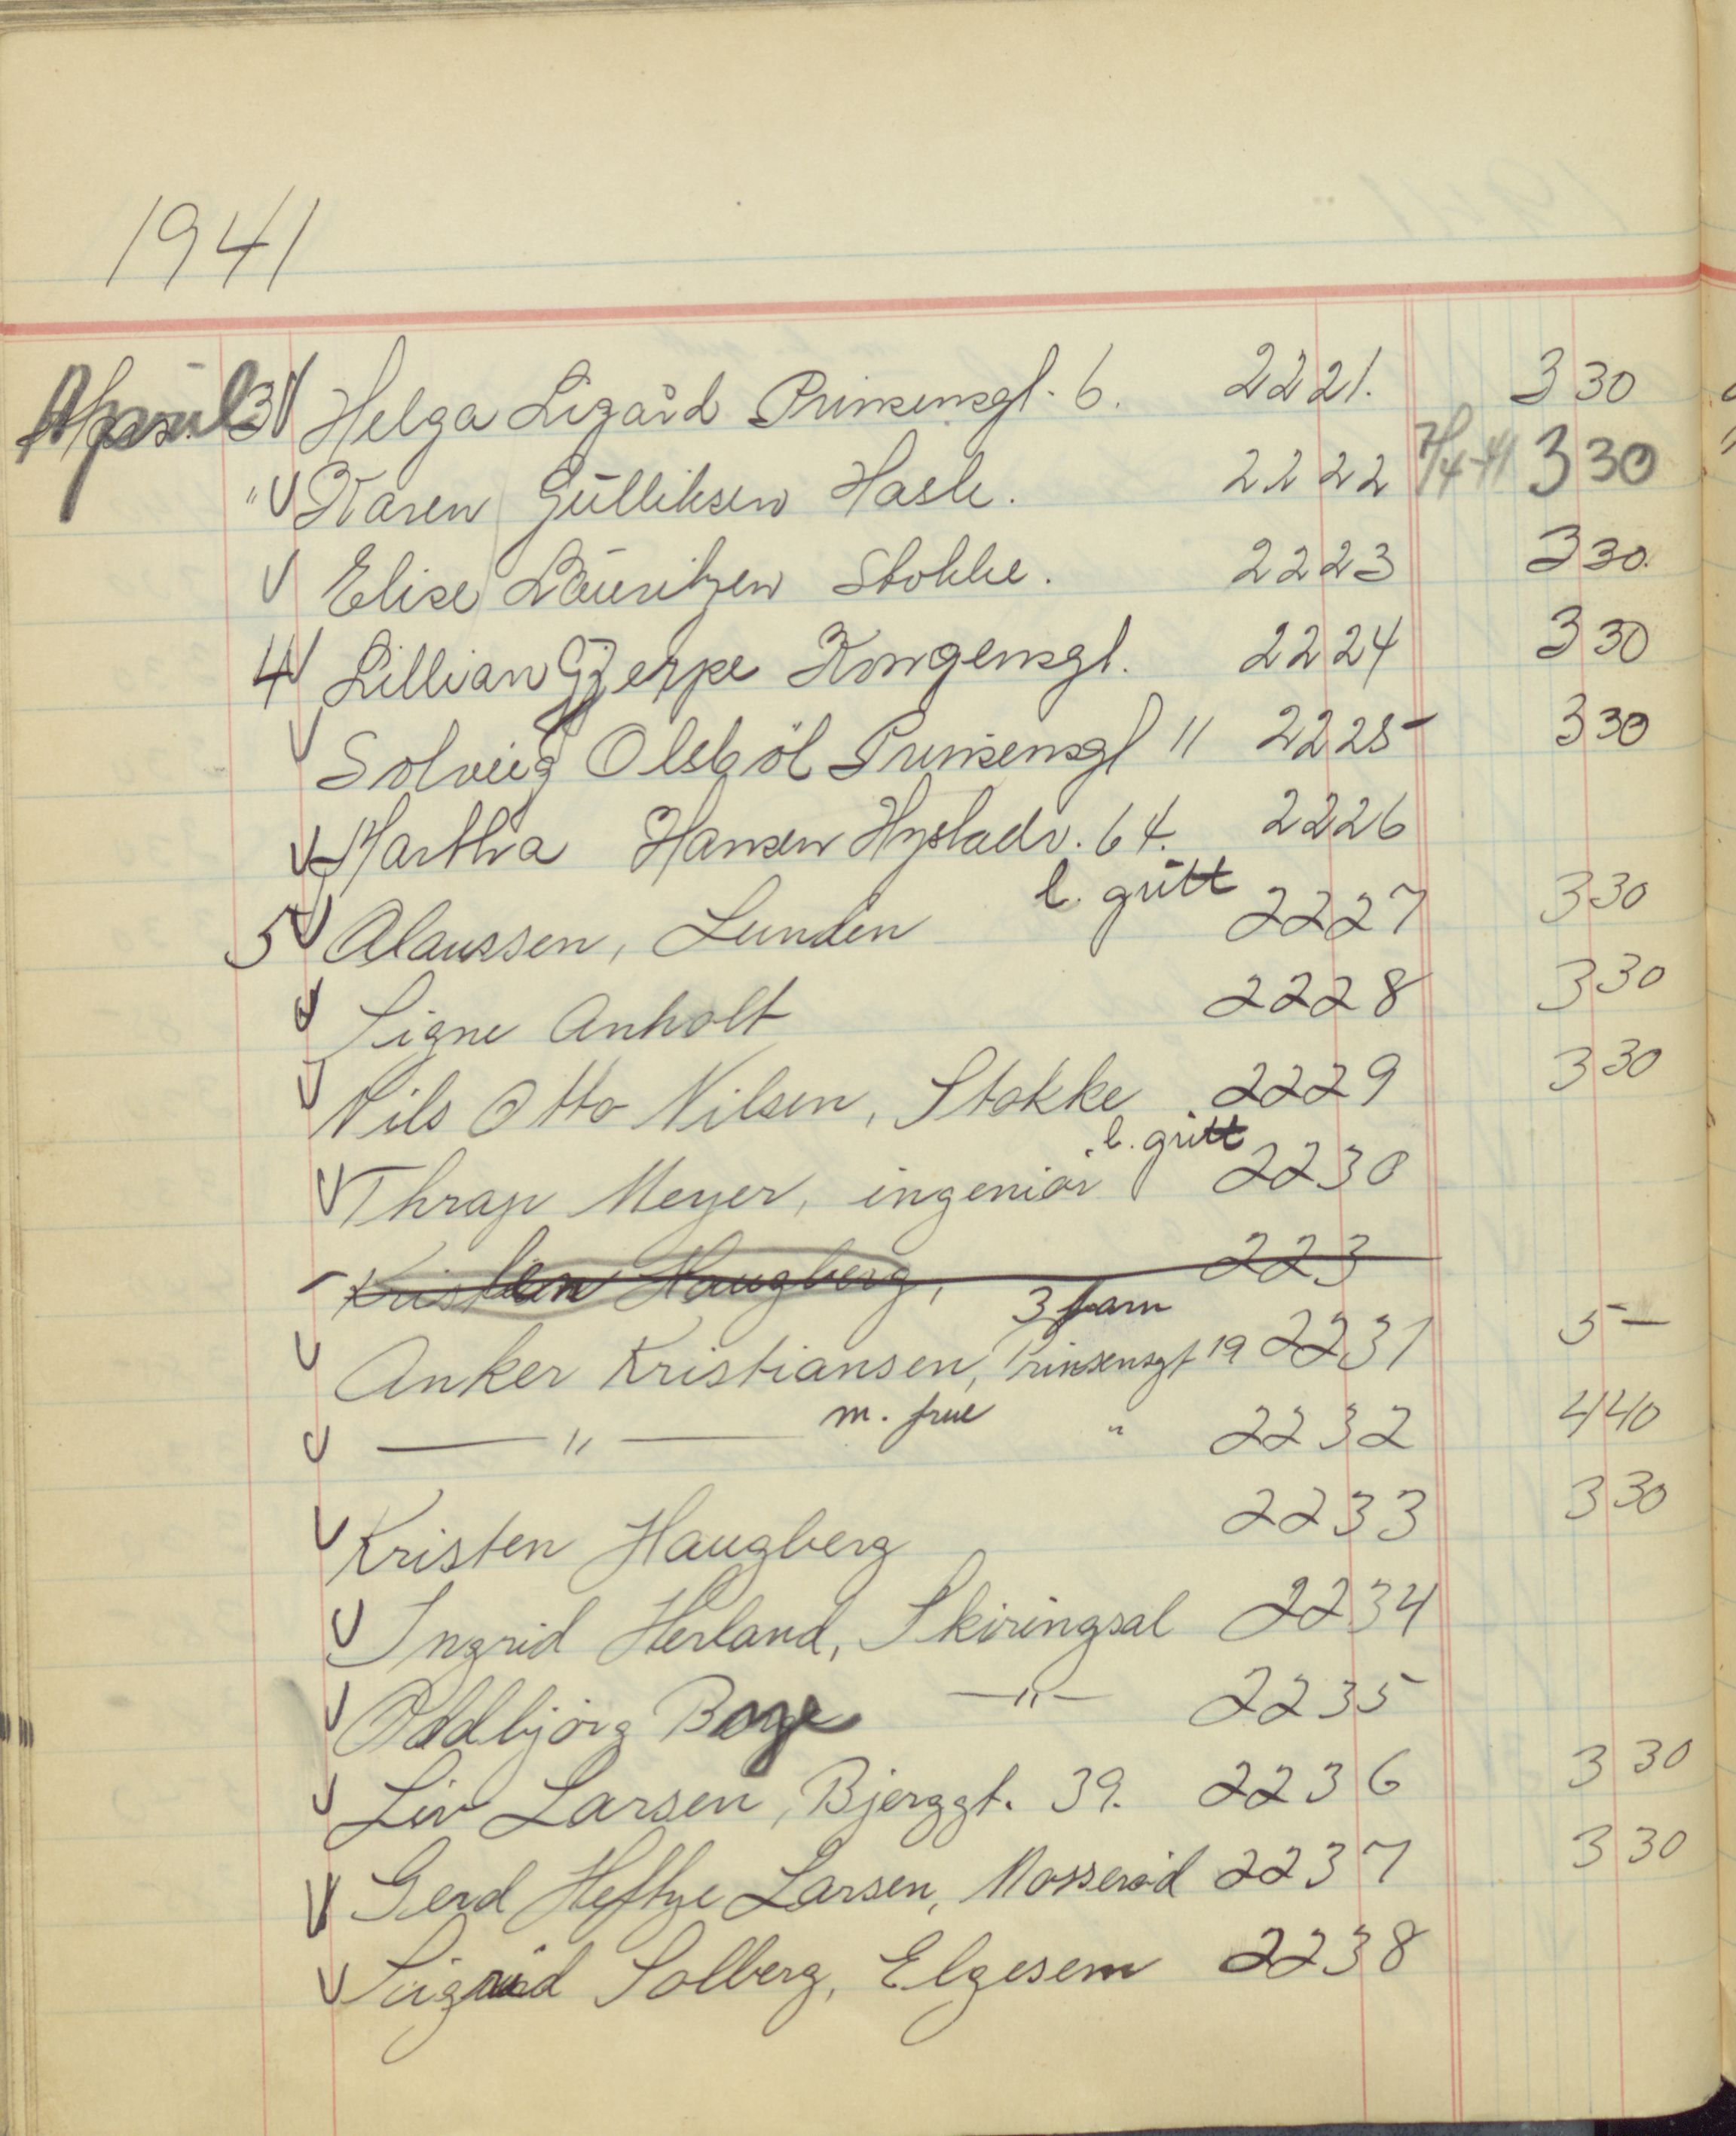 1941
April 3 Helga Lizård Prinsensgt. 6. 2221. 3 30
" Karen Gulliksen Hasle. 2222 7/4-41 3 30
Elise Lauritzen Stokke. 2223 3 30.
4 Lillian Gjerpe Kongensgt. 2224 3 30
Solveig Olsböl Prinsensgt 11 2225 3 30
Martha Hansen Hystadv. 64. 2226
l. gutt
5 Olaussen, Lunden 2227 3 30
Signe Anholt 2228 3 30
Nils Otto Nilsen, Stokke 2229 3 30
l. gutt
Thrap Meyer, ingeniør 2230
Kristen Haugberg, 223
3 barn
Anker Kristiansen, Prinsensgt 19 2231 5 —
— " — m. frue " 2232 4 40
Kristen Haugberg 2233 3 30
Ingrid Herland, Skiringsal 2234
Oddbjørg Bøge — " — 2235
Liv Larsen, Bjerggt. 39. 2236 3 30
Gerd Heftye Larsen, Mosserød 2237 3 30
Sigrid Solberg, Elgesem 2238